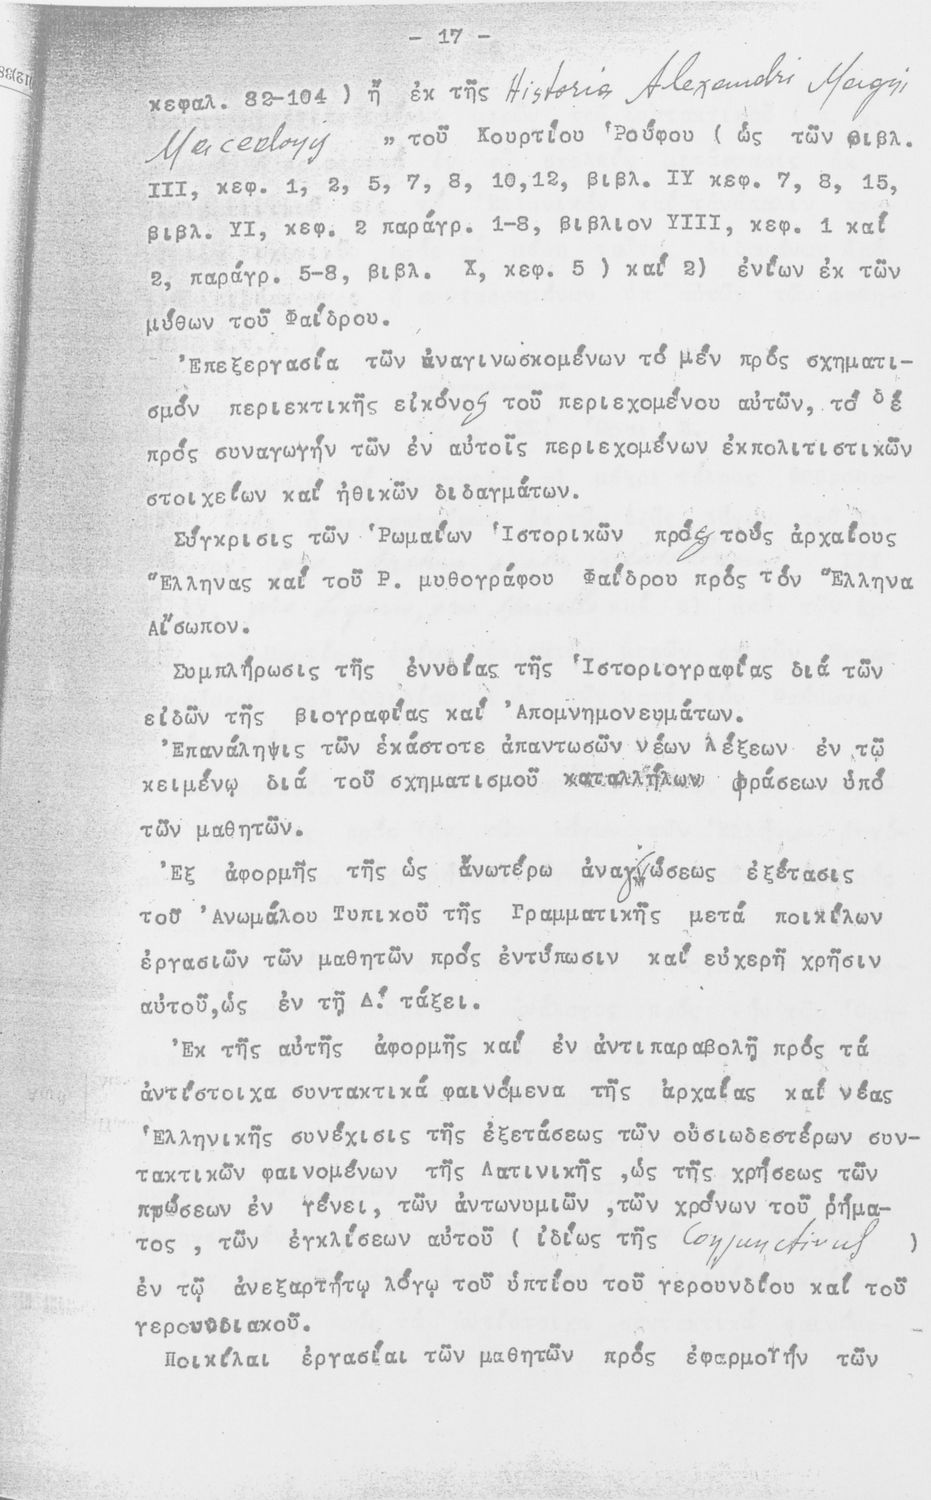 - 17 -
κεφαλ. 82-104 ) ἤ ἐκ τῆς Historia Alexandri Magni
Macedonis „ τοῦ Κουρτίου Ῥούφου ( ὡς τῶν βιβλ.
III, κεφ. 1, 2, 5, 7, 8, 10,12, βιβλ. IY κεφ. 7, 8, 15,
βιβλ. YI, κεφ. 2 παράγρ. 1-8, βιβλιον YIII, κεφ. 1 καί
2, παράγρ. 5-8, βιβλ. X, κεφ. 5 ) καί 2) ἐνίων ἐκ τῶν
μύθων τοῦ Φαίδρου.
Ἐπεξεργασία τῶν ἀναγινωσκομένων τό μέν πρός σχηματι-
σμόν περιεκτικῆς εἰκόνος τοῦ περιεχομένου αὐτῶν, τό δέ
πρός συναγωγήν τῶν ἐν αὐτοῖς περιεχομένων ἐκπολιτιστικῶν
στοιχείων καί ἠθικῶν διδαγμάτων.
Σύγκρισις τῶν Ῥωμαίων Ἱστορικῶν πρός τούς ἀρχαίους
Ἕλληνας καί τοῦ Ρ. μυθογράφου Φαίδρου πρός τόν Ἕλληνα
Αἴσωπον.
Συμπλήρωσις τῆς ἐννοίας τῆς Ἱστοριογραφίας διά τῶν
εἰδῶν τῆς βιογραφίας καί Ἀπομνημονευμάτων.
Ἐπανάληψις τῶν ἑκάστοτε ἀπαντωσῶν νέων λέξεων ἐν τῷ
κειμένῳ διά τοῦ σχηματισμοῦ καταλλήλων φράσεων ὑπό
τῶν μαθητῶν.
Ἐξ ἀφορμῆς τῆς ὡς ἄνωτέρω ἀναγνώσεως ἐξέτασις
τοῦ Ἀνωμάλου Τυπικοῦ τῆς Γραμματικῆς μετά ποικίλων
ἐργασιῶν τῶν μαθητῶν πρός ἐντύπωσιν καί εὐχερῆ χρῆσιν
αὐτοῦ,ὡς ἐν τῇ Δ! τάξει.
Ἐκ τῆς αὐτῆς ἀφορμῆς καί ἐν ἀντιπαραβολῇ πρός τά
ἀντίστοιχα συντακτικά φαινόμενα τῆς ἀρχαίας καί νέας
Ἑλληνικῆς συνέχισις τῆς ἐξετάσεως τῶν οὐσιωδεστέρων συν-
τακτικῶν φαινομένων τῆς Λατινικῆς ,ὡς τῆς χρήσεως τῶν
πτώσεων ἐν γένει, τῶν ἀντωνυμιῶν ,τῶν χρόνων τοῦ ῥήμα-
τος , τῶν ἐγκλίσεων αὐτοῦ ( ἰδίως τῆς Conjunctivus )
ἐν τῷ ἀνεξαρτήτῳ λόγῳ τοῦ ὑπτίου τοῦ γερουνδίου καί τοῦ
γερουνδιακοῦ.
Ποικίλαι ἐργασίαι τῶν μαθητῶν πρός ἐφαρμογήν τῶν